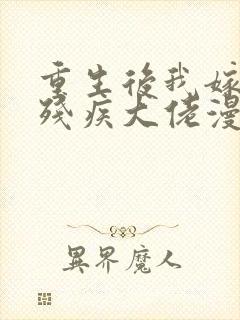 重生後我嫁
殘疾大佬漫
異界魔人